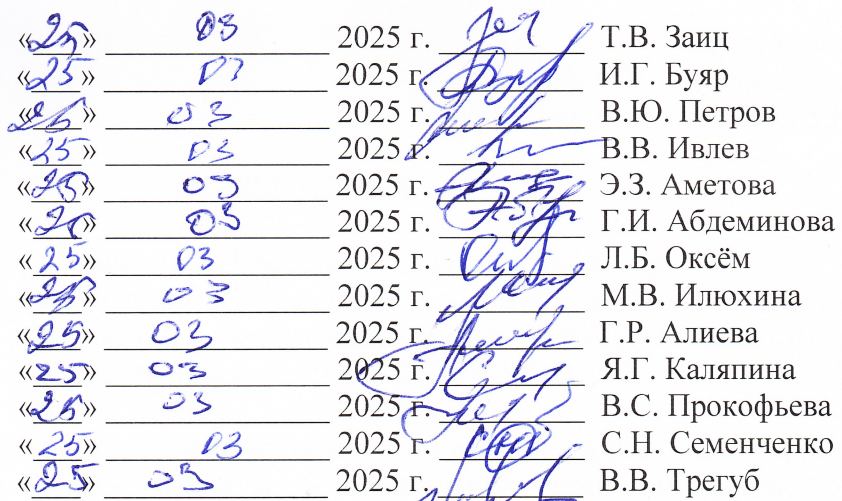 «25» 03 2025 г. Т.В. Заиц
«25» 03 2025 г. И.Г. Буяр
«25» 03 2025 г. В.Ю. Петров
«25» 03 2025 г. В.В. Ивлев
«25» 03 2025 г. Э.З. Аметова
«25» 03 2025 г. Г.И. Абдеминова
«25» 03 2025 г. Л.Б. Оксём
«25» 03 2025 г. М.В. Илюхина
«25» 03 2025 г. Г.Р. Алиева
«25» 03 2025 г. Я.Г. Каляпина
«25» 03 2025 г. В.С. Прокофьева
«25» 03 2025 г. С.Н. Семенченко
«25» 03 2025 г. В.В. Трегуб